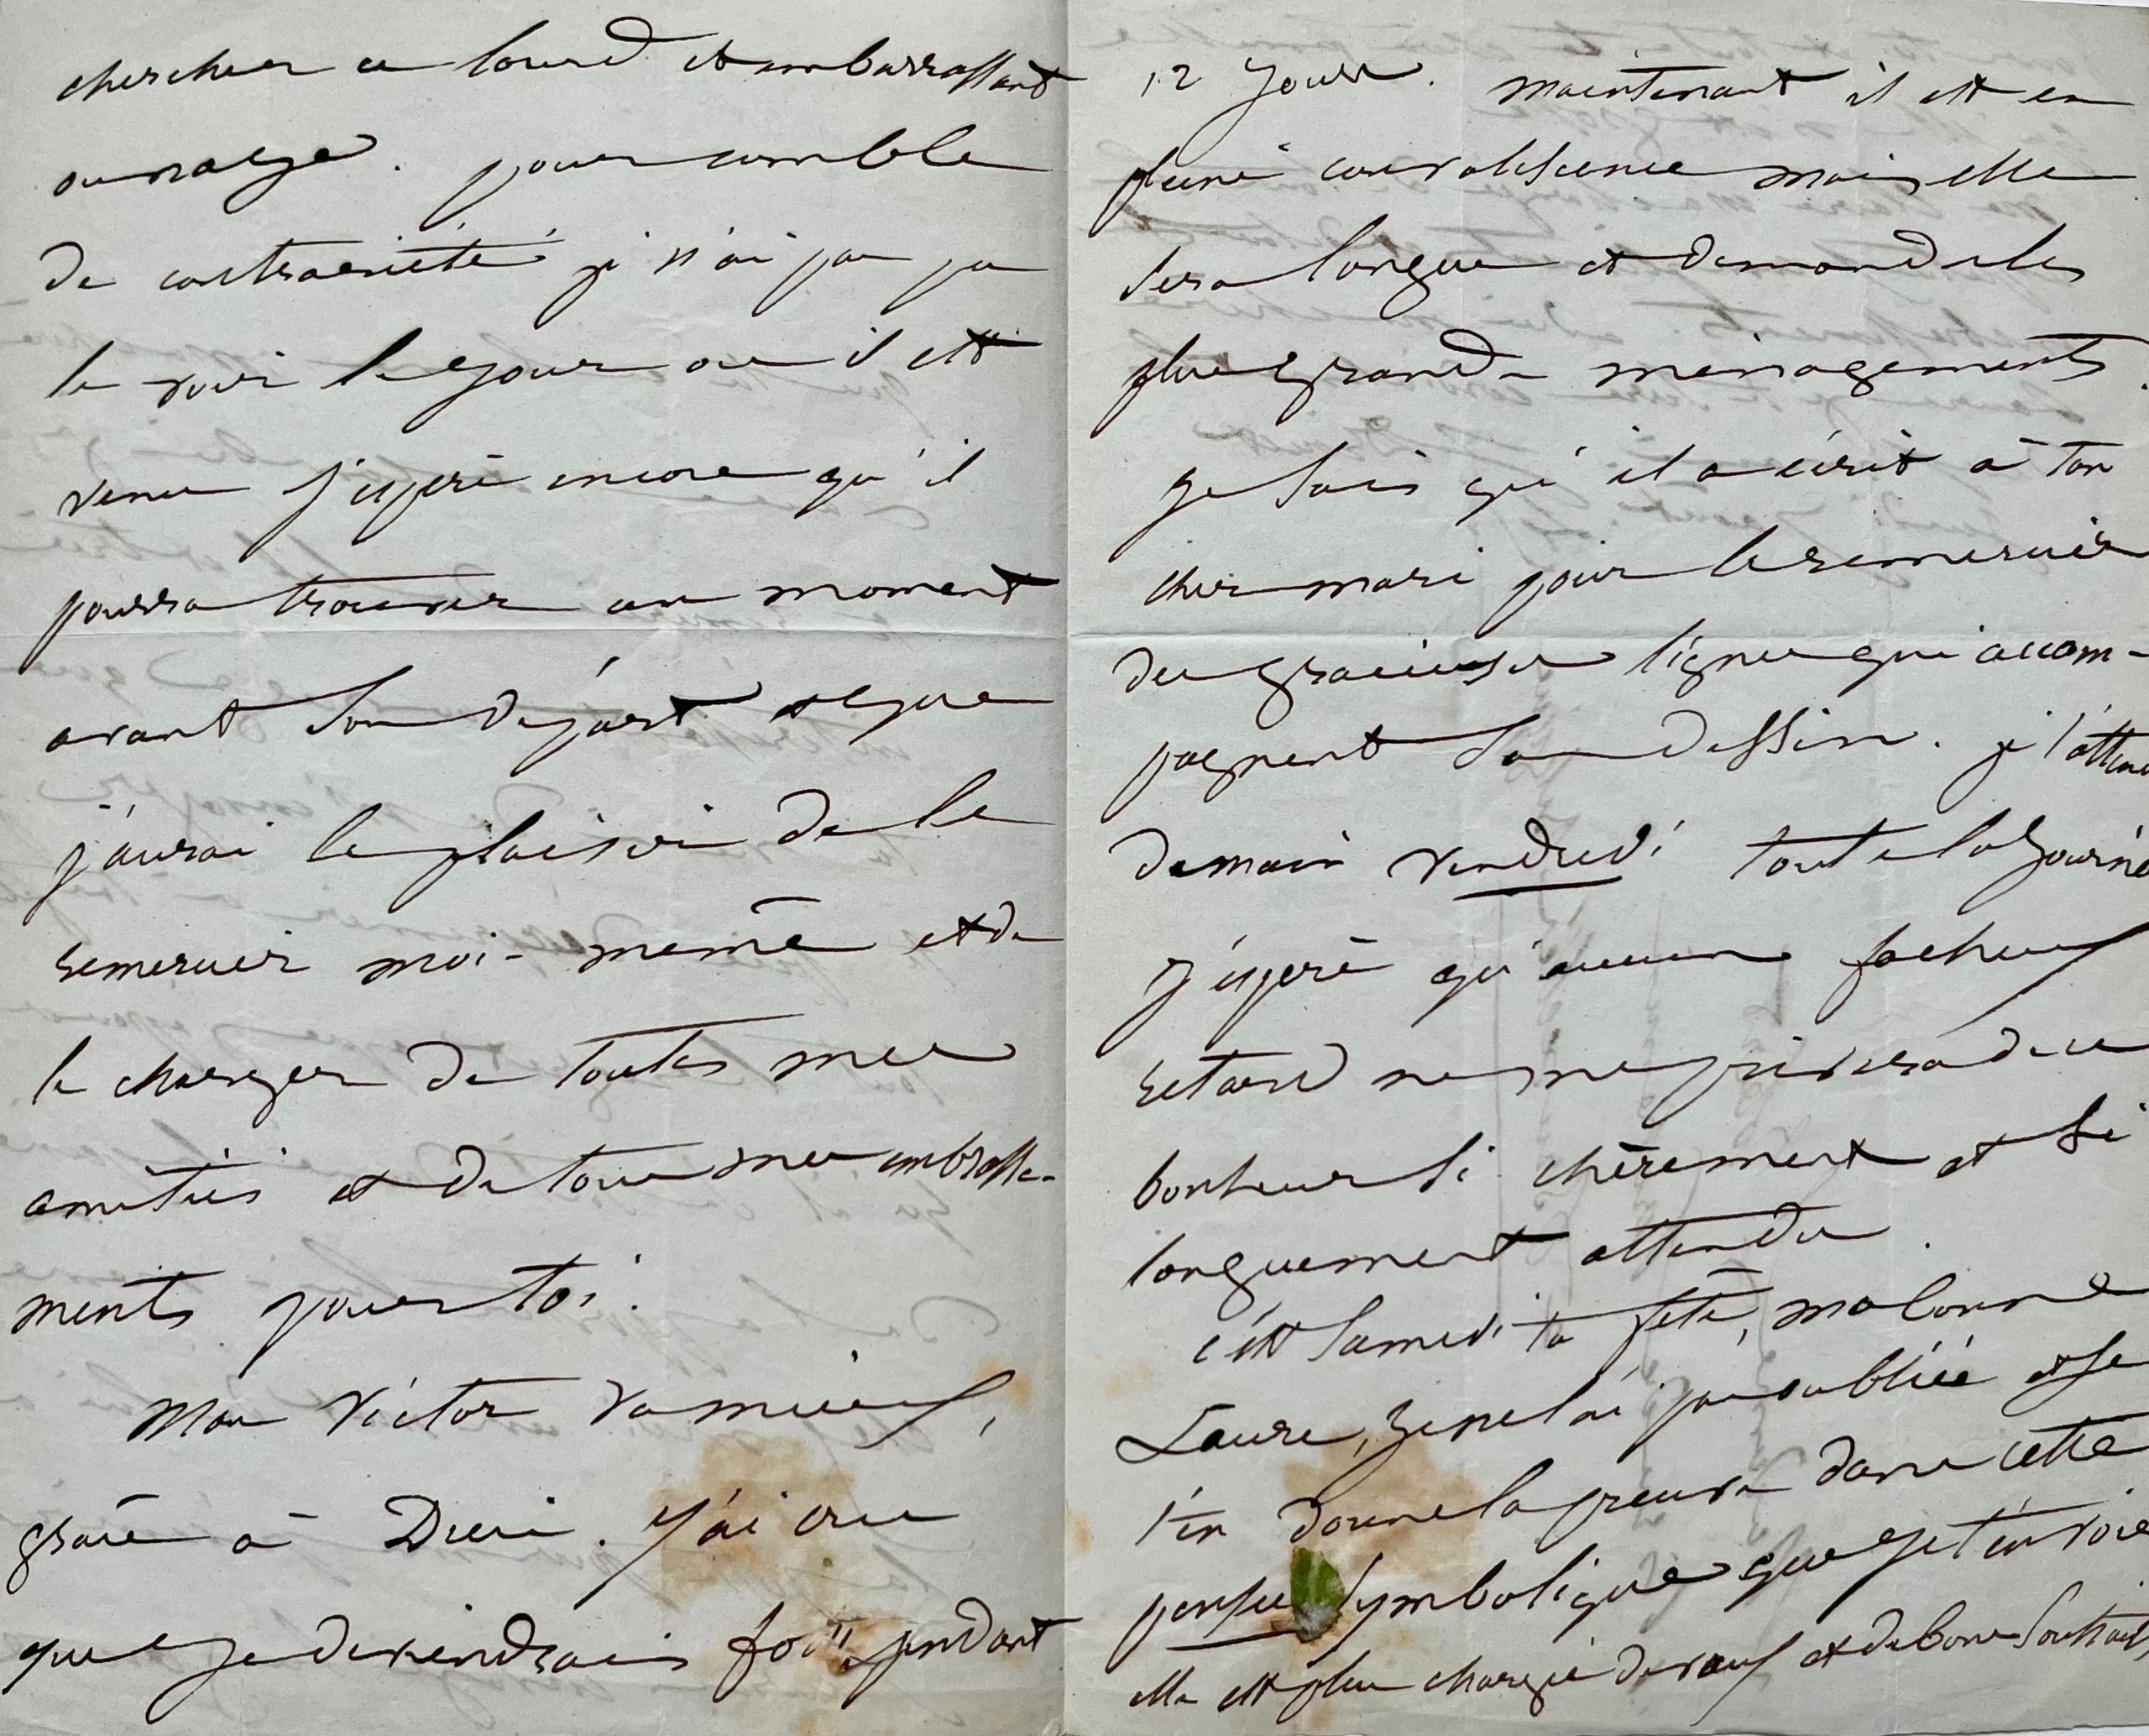 chercher ce lourd et embarrassant
ouvrage. pour comble
de contrariété je n'ai pas pu
le voir le jour où il est
venu j'espère encore qu'il
pourra trouver un moment
avant son départ et que
j'aurai le plaisir de le
remercier moi-même et de
le charger de toutes mes
amitiés et de tous mes embrasse-
ments pour toi.
Mon Victor va mieux,
grâce à Dieu. J'ai cru
que je deviendrais folle pendant
12 jours. maintenant il est en
pleine convalescence mais elle
sera longue et demande les
plus grands ménagements.
Je sais qu'il a écrit à ton
cher mari pour le remercier
des gracieuses lignes qui accom-
pagnent son dessin. je l'attend
demain vendredi toute la journé
J'espère qu'aucun facheux
retard ne me privera de ce
bonheur si chèrement et si
longuement attendu.
c'est Samedi ta fête, ma bonne
Laure, je ne l'ai pas oubliée et je
t'en donne la preuve dans cette
pensée symbolique que je t'envoie
elle est plus chargée de vœux et de bons souhaits